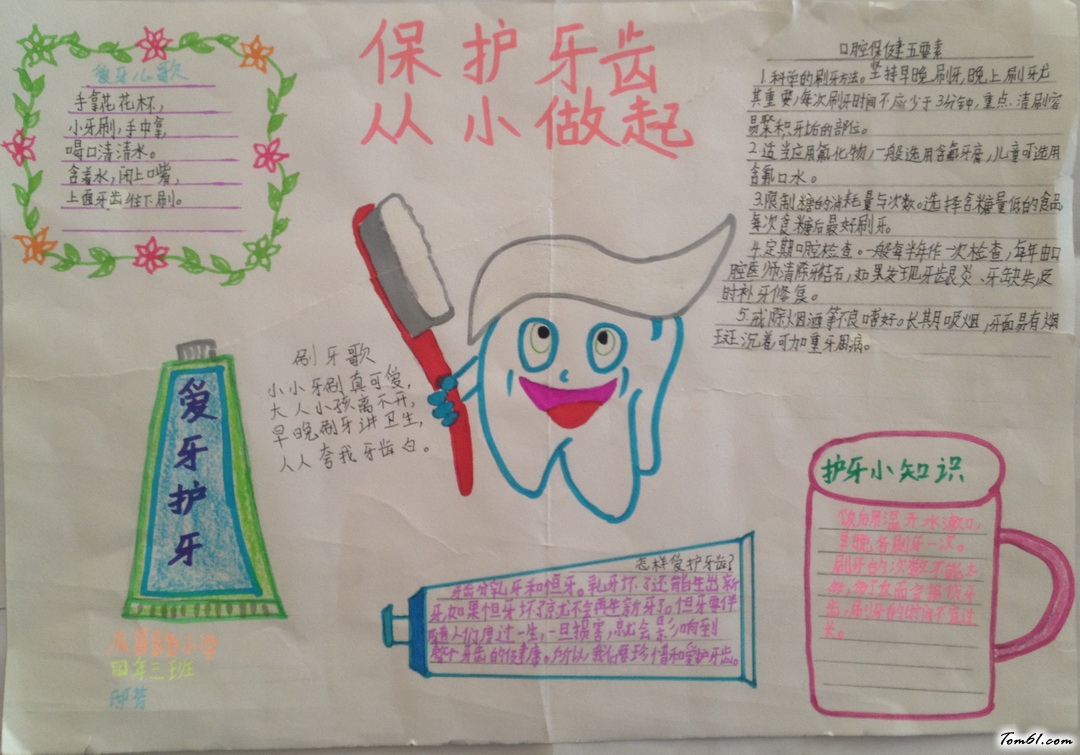 保护牙齿
从小做起
爱牙儿歌
手拿花花杯，
小牙刷，手中拿，
喝口清清水。
含着水，闭上口嘴，
上面牙齿往下刷。
口腔保健五要素
1.科学的刷牙方法。坚持早晚刷牙，晚上刷牙尤
其重要，每次刷牙时间不应少于3分钟，重点清刷容
易聚积牙垢的部位。
2.适当应用氟化物，一般选用含氟牙膏，儿童可选用
含氟口水。
3.限制糖的消耗量与次数。选择含糖量低的食品
每次食糖后最好刷牙。
4.定期口腔检查。一般每半年作一次检查，每年由口
腔医师清除牙结石，如果发现牙龈炎、牙齿缺失，及
时补牙修复。
5.戒除烟酒等不良嗜好。长期吸烟，牙面易有烟
斑沉着可加重牙周病。
刷牙歌
小小牙刷真可爱，
大人小孩离不开，
早晚刷牙讲卫生，
人人夸我牙齿白。
爱牙护牙
护牙小知识
饭后用温开水漱口，
早晚各刷牙一次。
刷牙的次数不能太
齿，刷牙的时间不宜过
长。
怎样爱护牙齿？
牙齿分乳牙和恒牙。乳牙坏了还能生出新
牙，如果恒牙坏了就不会再生新牙了。恒牙要伴
随着人们度过一生，一旦损害，就会影响到
整个牙齿的健康。所以，我们要珍惜和爱护牙齿。
小学
四年三班
Tom61.com